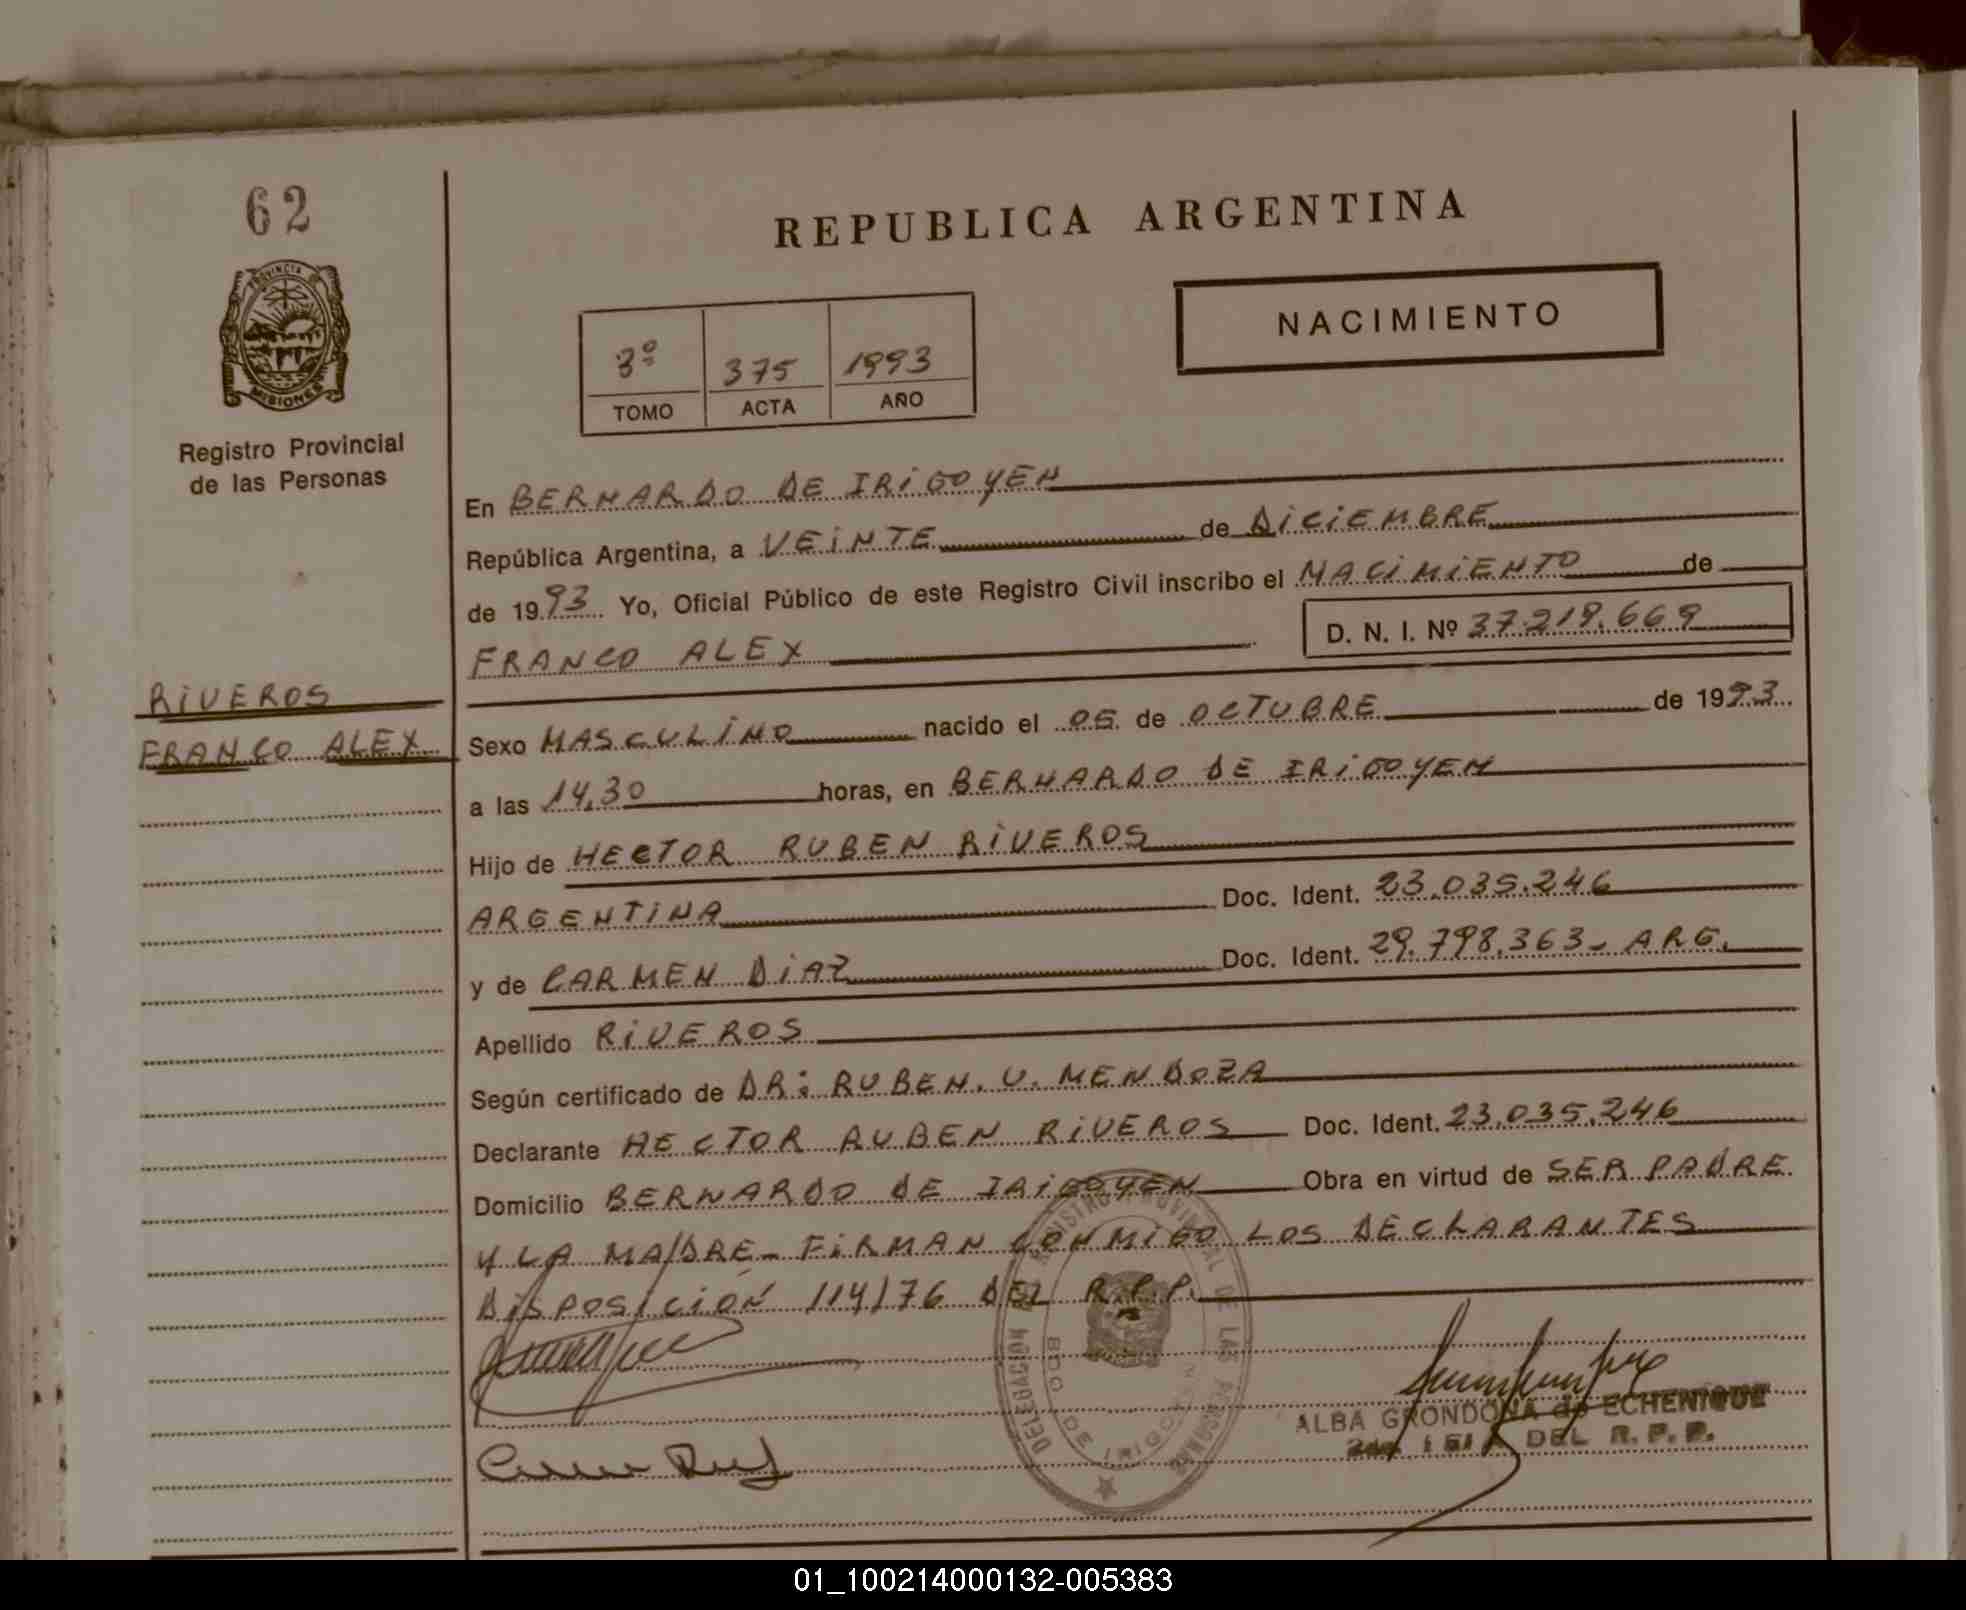 62
REPUBLICA ARGENTINA
PROVINCIA DE
MISIONES
Registro Provincial
de las Personas
3º 375 1993
TOMO ACTA AÑO
NACIMIENTO
En BERNARDO DE IRIGOYEN
República Argentina, a VEINTE de DICIEMBRE
de 1993 Yo, Oficial Público de este Registro Civil inscribo el NACIMIENTO de
FRANCO ALEX D. N. I. Nº 37.219.669
RIVEROS
FRANCO ALEX
Sexo MASCULINO nacido el 05 de OCTUBRE de 1993
a las 14,30 horas, en BERNARDO DE IRIGOYEN
Hijo de HECTOR RUBEN RIVEROS
ARGENTINA Doc. Ident. 23.035.246
y de CARMEN DIAZ Doc. Ident. 29.798.363- ARG.
Apellido RIVEROS
Según certificado de DR: RUBEN. U. MENDOZA
Declarante HECTOR RUBEN RIVEROS Doc. Ident. 23.035.246
Domicilio BERNARDO DE IRIGOYEN Obra en virtud de SER PADRE
Y LA MADRE- FIRMAN CONMIGO LOS DECLARANTES
DISPOSICIÓN 114/76 DEL R.P.P.
DELEGACION DEL REGISTRO PROVINCIAL DE LAS PERSONAS
BDO DE IRIGOYEN
ALBA GRONDONA de ECHENIQUE
DEL R. P. P.
01_100214000132-005383